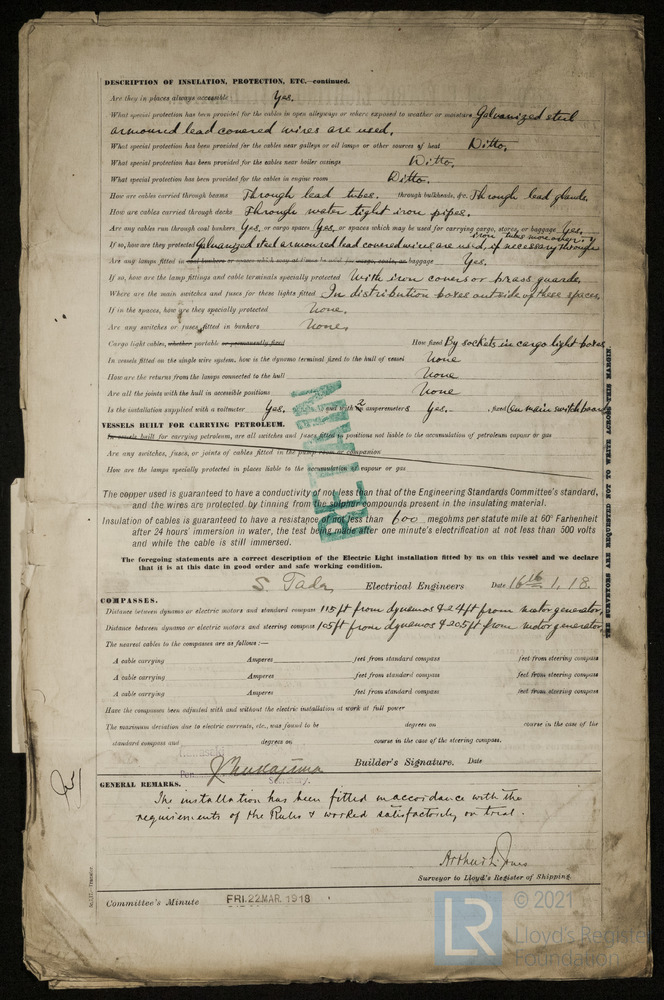 DESCRIPTION OF INSULATION, PROTECTION, ETC.—continued.
Are they in places always accessible Yes.
What special protection has been provided for the cables in open alleyways or where exposed to weather or moisture Galvanized steel
armoured lead covered wires are used.
What special protection has been provided for the cables near galleys or oil lamps or other sources of heat Ditto.
What special protection has been provided for the cables near boiler casings Ditto.
What special protection has been provided for the cables in engine room Ditto.
How are cables carried through beams Through lead tubes. through bulkheads, &c. Through lead glands.
How are cables carried through decks Through water tight iron pipes.
Are any cables run through coal bunkers Yes, or cargo spaces Yes, or spaces which may be used for carrying cargo, stores, or baggage Yes.
If so, how are they protected Galvanized steel armoured lead covered wires are used, if necessary through
iron tubes moreover.
Are any lamps fitted in coal bunkers or spaces which may at times be used for cargo, coals, or baggage Yes.
If so, how are the lamp fittings and cable terminals specially protected With iron covers or brass guards.
Where are the main switches and fuses for these lights fitted In distribution boxes outside of these spaces.
If in the spaces, how are they specially protected None.
Are any switches or fuses fitted in bunkers None.
Cargo light cables, whether portable or permanently fixed How fixed By sockets in cargo light boxes.
In vessels fitted on the single wire system, how is the dynamo terminal fixed to the hull of vessel None
How are the returns from the lamps connected to the hull None
Are all the joints with the hull in accessible positions None
Is the installation supplied with a voltmeter Yes, and with 2 amperemeters Yes.- , fixed On main switch board
VESSELS BUILT FOR CARRYING PETROLEUM.
In vessels built for carrying petroleum, are all switches and fuses fitted in positions not liable to the accumulation of petroleum vapour or gas
Are any switches, fuses, or joints of cables fitted in the pump room or companion
How are the lamps specially protected in places liable to the accumulation of vapour or gas
The copper used is guaranteed to have a conductivity of not less than that of the Engineering Standards Committee's standard,
and the wires are protected by tinning from the sulphur compounds present in the insulating material.
Insulation of cables is guaranteed to have a resistance of not less than 600 megohms per statute mile at 60° Farhenheit
after 24 hours' immersion in water, the test being made after one minute's electrification at not less than 500 volts
and while the cable is still immersed.
The foregoing statements are a correct description of the Electric Light installation fitted by us on this vessel and we declare
that it is at this date in good order and safe working condition.
S. Tada Electrical Engineers Date 16th 1. 18.
COMPASSES.
Distance between dynamo or electric motors and standard compass 115 ft from dynamos & 24 ft from motor generator,
Distance between dynamo or electric motors and steering compass 105 ft from dynamos & 20.5 ft from motor generator,
The nearest cables to the compasses are as follows:—
A cable carrying Amperes feet from standard compass feet from steering compass
A cable carrying Amperes feet from standard compass feet from steering compass
A cable carrying Amperes feet from standard compass feet from steering compass
Have the compasses been adjusted with and without the electric installation at work at full power
The maximum deviation due to electric currents, etc., was found to be degrees on course in the case of the
standard compass and degrees on course in the case of the steering compass.
Builder's Signature. Date
GENERAL REMARKS.
The installation has been fitted in accordance with the
requirements of the Rules & worked satisfactorily on trial.
Arthur L. Jones
Surveyor to Lloyd's Register of Shipping.
Committee's Minute FRI. 22 MAR. 1918
THE SURVEYORS ARE REQUESTED NOT TO WRITE ACROSS THIS MARGIN
LR
© 2021
Lloyd's Register
Foundation